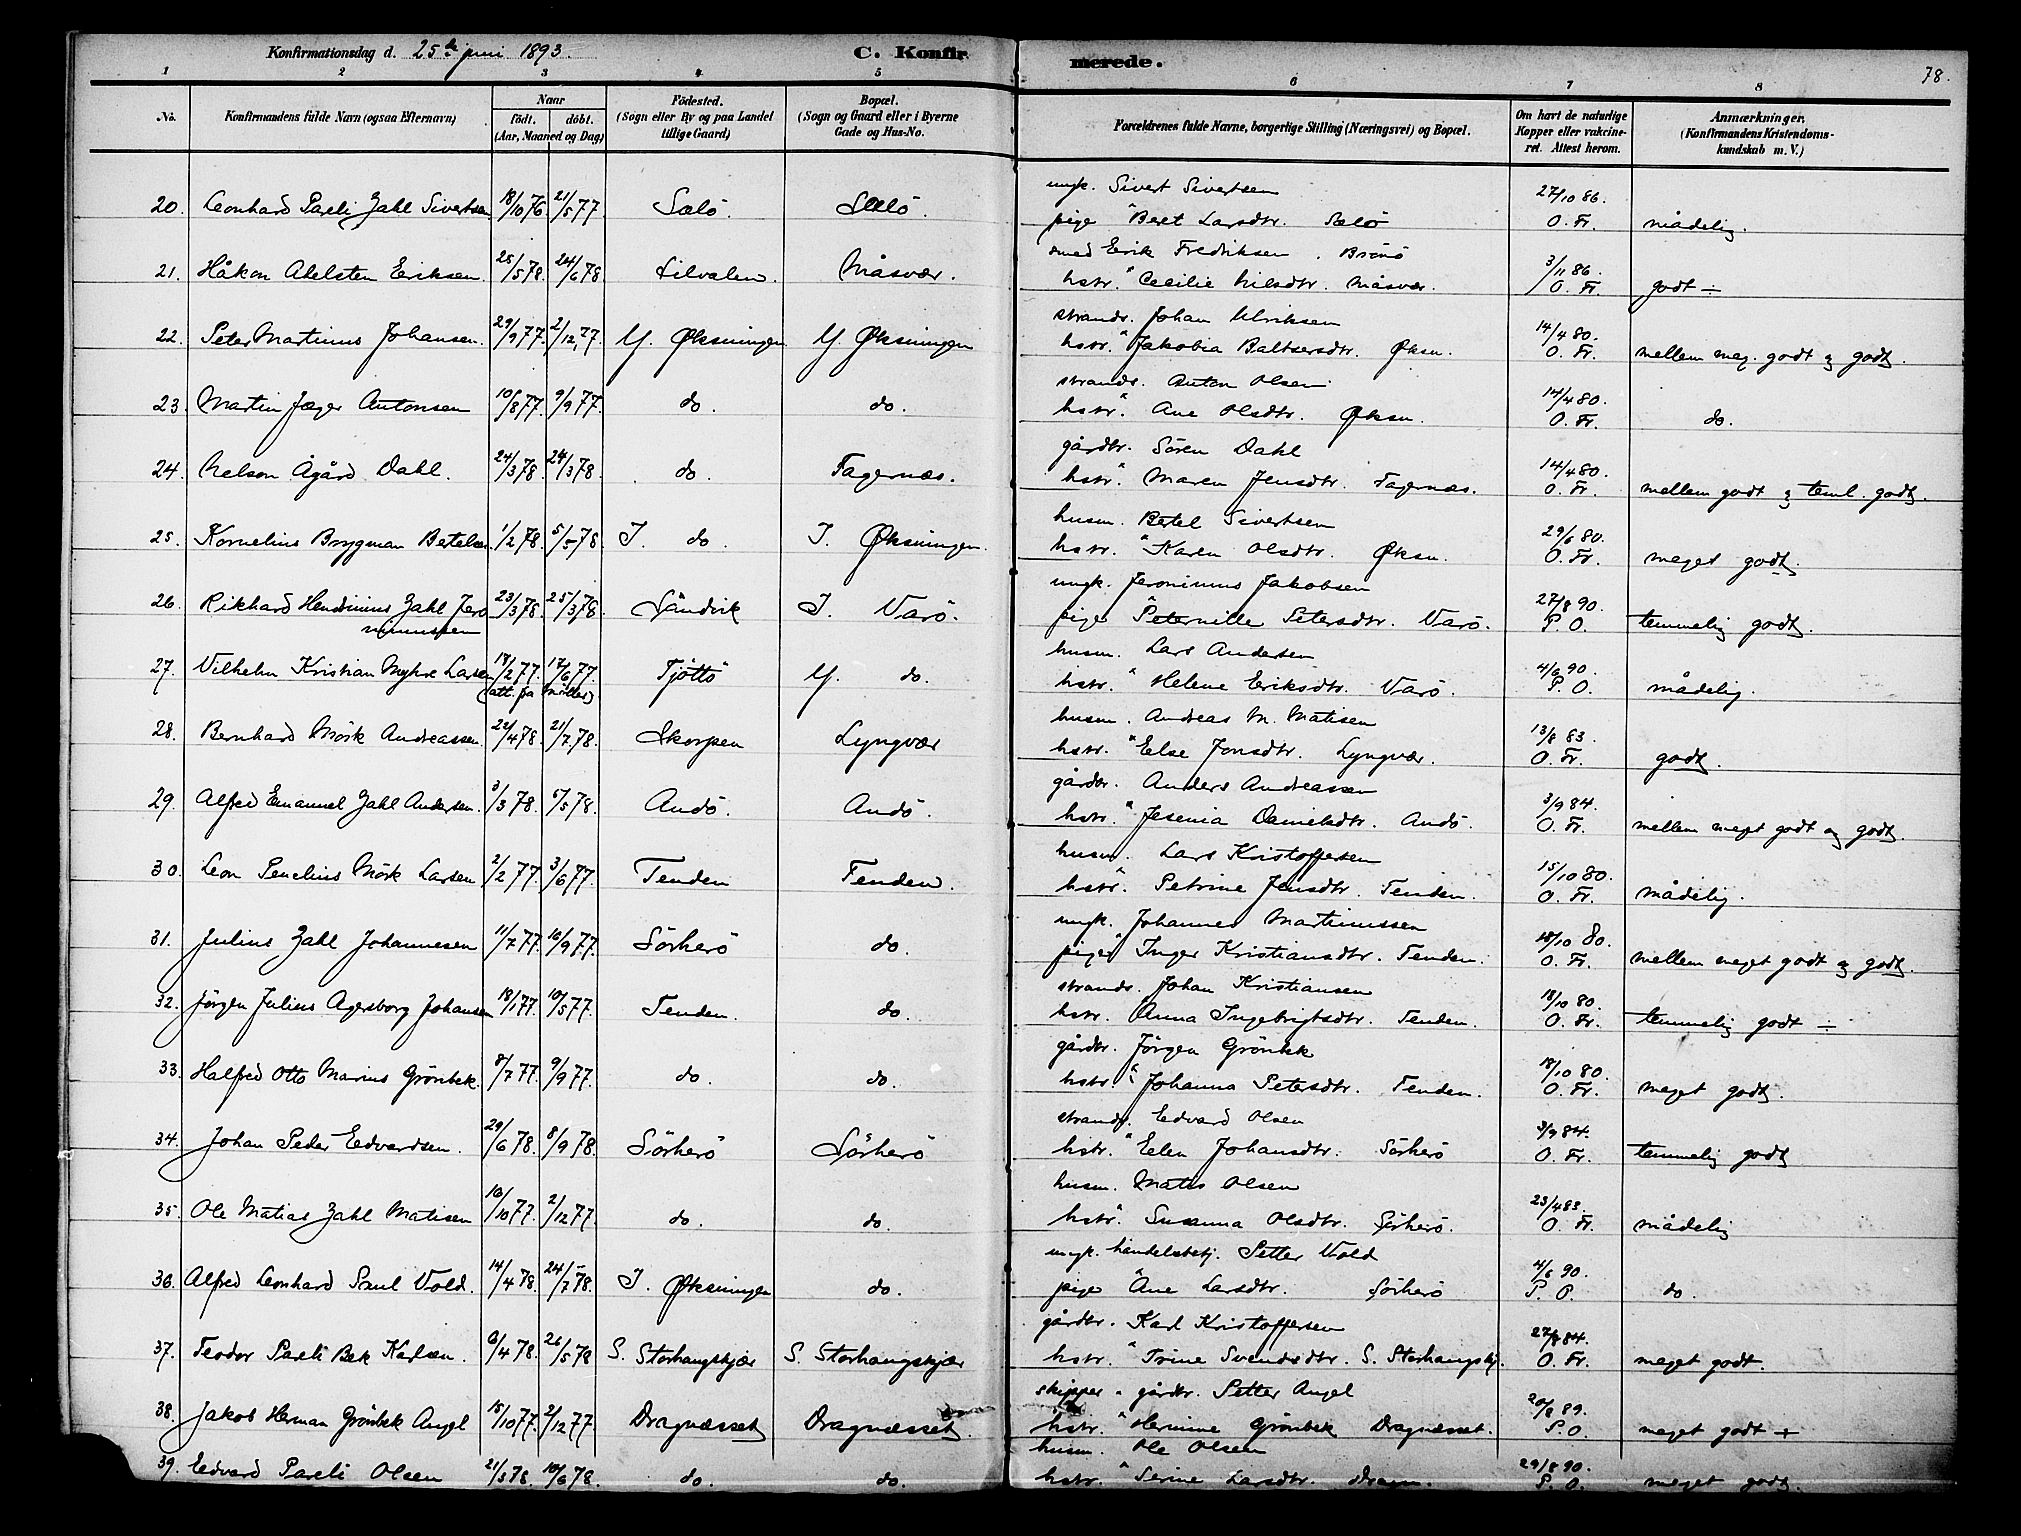 Konfirmationsdag d. 25de juni 1893. C. Konfirmerede. 78.
1 2 3 4 5 6 7 8
No. Konfirmandens fulde Navn (ogsaa Efternavn) Naar født. døbt. (Aar, Maaned og Dag) Födested. (Sogn eller By og paa Landet tillige Gaard) Bopæl. (Sogn og Gaard eller i Byerne Gade og Hus-No. Forældrenes fulde Navne, borgerlige Stilling (Næringsvei) og Bopæl. Om havt de naturlige Kopper eller vakcineret. Attest herom. Anmærkninger. (Konfirmandens Kristendomskundskab m. V.)
ungk. Sivert Sivertsen
20. Leonhard Pareli Zahl Sivertsen 18/10 76. 21/5 77. Sælö. Sælö. pige Beret Larsdtr. Sælö 27/10 86. O. Fr. mådelig.
smed Erik Fredriksen. Brönö
21. Håkon Adelsten Eriksen. 25/5 78. 24/6 78 Lilvalen. Måsvær. hstr. Cecilie Nilsdtr. Måsvær. 3/11 86. O. Fr. godt ÷
strands. Johan Ulriksen
22. Peter Martinus Johansen. 29/9 77. 2/12 77. Y. Øksningen Y. Øksningen hstr. Jakobia Baltsersdtr. Øksn. 14/4 80. O. Fr. mellem meg. godt og godt.
strands. Anton Olsen
23. Martin Jæger Antonsen 10/8 77. 9/9 77. do. do. hstr. Ane Olsdtr. Øksn. 14/4 80. O. Fr. do.
gårdbr. Sören Dahl
24. Nelson Ågård Dahl. 24/3 78. 24/3 78. do. Fagernæs. hstr. Maren Jensdtr. Fagernæs. 14/4 80. O. Fr. mellem godt og teml. godt.
husm. Bertel Sivertsen
25. Kornelius Brygman Bertelsen 1/2 78. 5/5 78. I. do. I. Øksningen. hstr. Karen Olsdtr. Øksn. 29/6 80. O. Fr. meget godt.
ungk. Jeronimus Jakobsen
26. Rikhard Hendinius Zahl Jeronimussen 23/3 78. 25/3 78. Sandvik I. Varö. pige Peternille Petersdtr. Varö. 27/8 90. P. O. temmelig godt.
husm. Lars Andersen
27. Vilhelm Kristian Myhre Larsen 18/2 77. 17/6 77. Tjöttö Y. do. hstr. Helene Eriksdtr. Varö. 4/6 90. P. O. mådelig.
(att. fra Möller)
husm. Andreas M. Matisen
28. Bernhard Mörk Andreassen. 22/4 78. 21/7 78. Skorpen Lyngvær hstr. Else Jonsdtr. Lyngvær. 13/8 83. O. Fr. godt.
gårdbr. Anders Andreassen
29. Alfred Emanuel Zahl Andersen. 3/3 78. 5/5 78. Andö. Andö. hstr. Jesenia Danielsdtr. Andö. 3/9 84. O. Fr. mellem meget godt og godt.
husm. Lars Kristoffersen
30. Leon Penelius Mörk Larsen 2/2 77. 3/6 77. Tenden Tenden. hstr. Petrine Jensdtr. Tenden. 15/10 80. O. Fr. mådelig.
ungk. Johannes Martinussen
31. Julius Zahl Johannesen 11/7 77. 16/9 77. Sörherö do. pige Inger Kristiansdtr. Tenden. 18/10 80. O. Fr. mellem meget godt og godt.
strands. Johan Kristiansen
32. Jörgen Julius Agersborg Johansen 18/1 77. 10/5 77. Tenden. do. hstr. Anna Ingebrigtsdtr. Tenden. 18/10 80. O. Fr. temmelig godt ÷
gårdbr. Jörgen Grönbek
33. Halfred Otto Marius Grönbek. 8/7 77. 9/9 77. do. do. hstr. Johanna Petersdtr. Tenden. 18/10 80. O. Fr. meget godt.
strands. Edvard Olsen
34. Johan Peder Edvardsen. 29/6 78. 8/9 78. Sörherö Sörherö hstr. Elen Johansdtr. Sörherö 3/9 84. O. Fr. temmelig godt
husm. Matis Olsen
35. Ole Matias Zahl Matisen 16/10 77. 2/12 77. do. do. hstr. Susanna Olsdtr. Sörherö. 23/4 83. O. Fr. mådelig
ungk. handelsbetj. Petter Vold
36. Alfred Leonhard Emil Vold. 14/4 78. 24/7 78. I. Øksningen do. pige Ane Larsdtr. Sörherö 4/6 90. P. O. do.
gårdbr. Karl Kristoffersen
37. Teodor Pareli Bek Karlsen. 6/4 78. 26/5 78 S. Storhaugskjær S. Storhaugskjær hstr. Trine Svendsdtr. S. Storhaugskj. 27/8 84. O. Fr. meget godt.
skipper o. gårdbr. Petter Angel
38. Jakob Herman Grönbek Angel 15/10 77. 2/12 77. Dragnæsset Dragnæsset. hstr. Hermine Grönbek Dragnæsset. 20/8 89. P. O. meget godt +
husm. Ole Olsen
39. Edvard Pareli Olsen 21/3 78. 10/6 78. do. do. hstr. Serine Larsdtr. Dragn. 29/8 90. P. O. meget godt.